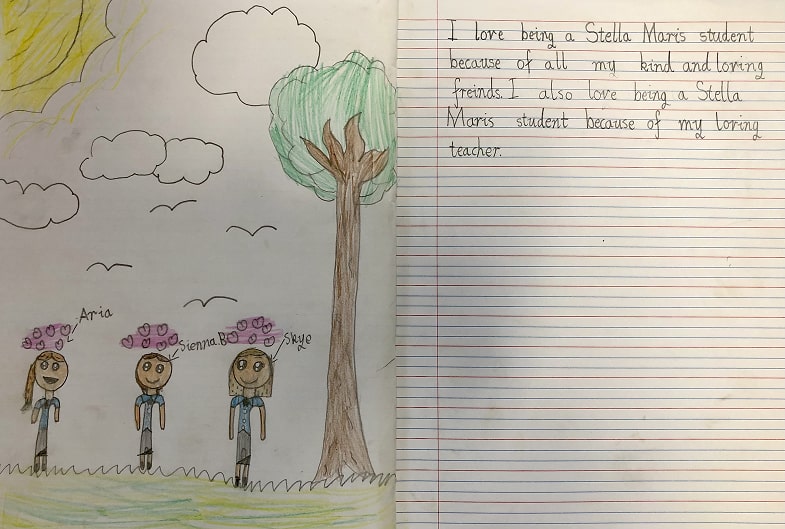 I love being a Stella Maris student
because of all my kind and loving
freinds. I also love being a Stella
Maris student because of my loving
teacher.
Aria
Sienna B
Skye